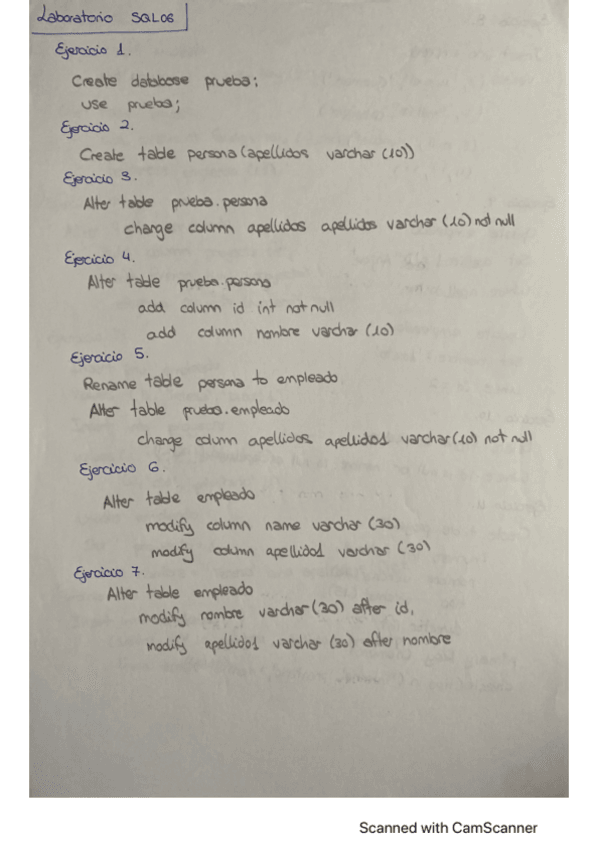 Laboratorio SQL06
Ejercicio 1.
Create database prueba;
use prueba;
Ejercicio 2.
Create table persona (apellidos varchar (10))
Ejercicio 3.
Alter table prueba.persona
change column apellidos apellidos varchar (10) not null
Ejercicio 4.
Alter table prueba.persona
add column id int not null
add column nombre varchar (10)
Ejercicio 5.
Rename table persona to empleado
Alter table prueba.empleado
change column apellidos apellido1 varchar (10) not null
Ejercicio 6.
Alter table empleado
modify column name varchar (30)
modify column apellido1 varchar (30)
Ejercicio 7.
Alter table empleado
modify nombre varchar (30) after id,
modify apellido1 varchar (30) after nombre
Scanned with CamScanner